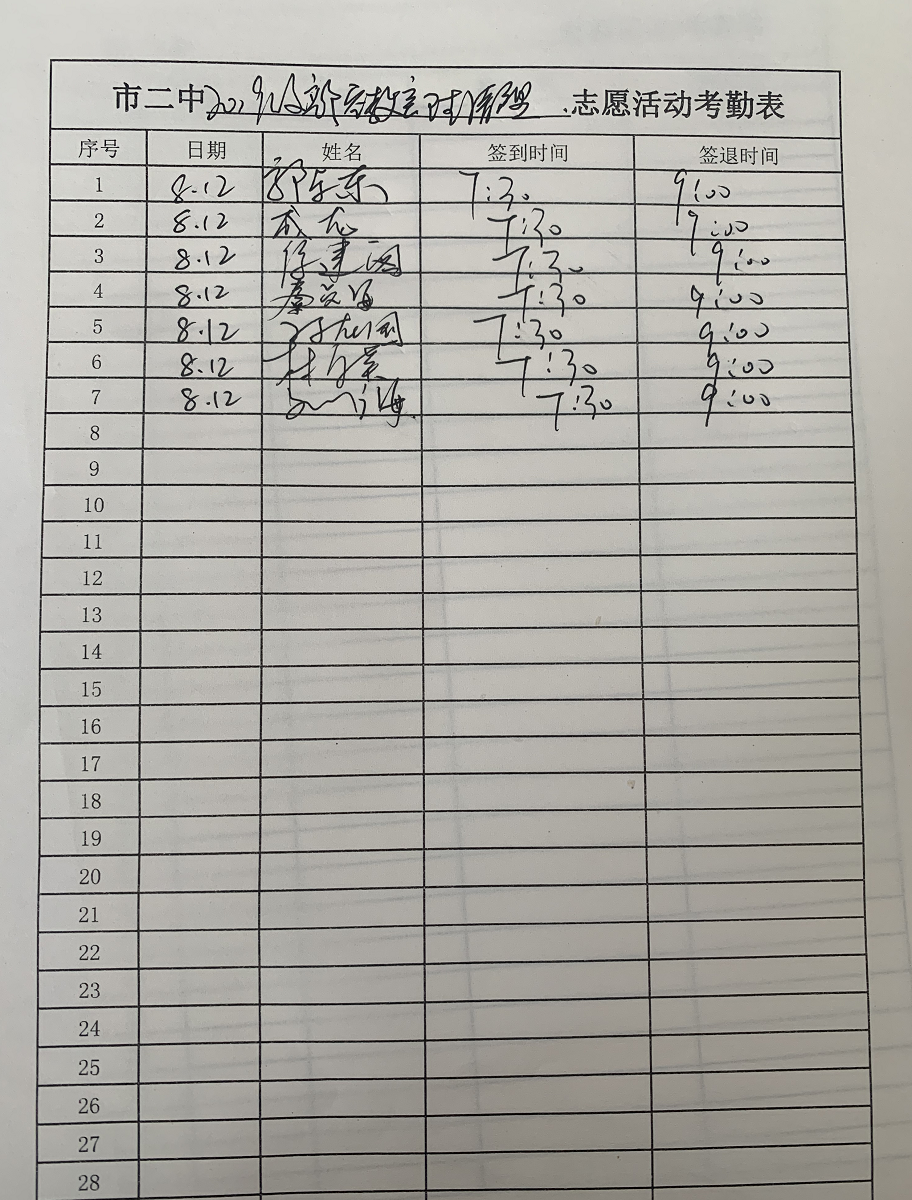 市二中 志愿活动考勤表
序号 日期 姓名 签到时间 签退时间
1 8.12 7:30 9:00
2 8.12 成龙 7:30 9:00
3 8.12 7:30 9:00
4 8.12 7:30 9:00
5 8.12 7:30 9:00
6 8.12 7:30 9:00
7 8.12 7:30 9:00
8
9
10
11
12
13
14
15
16
17
18
19
20
21
22
23
24
25
26
27
28